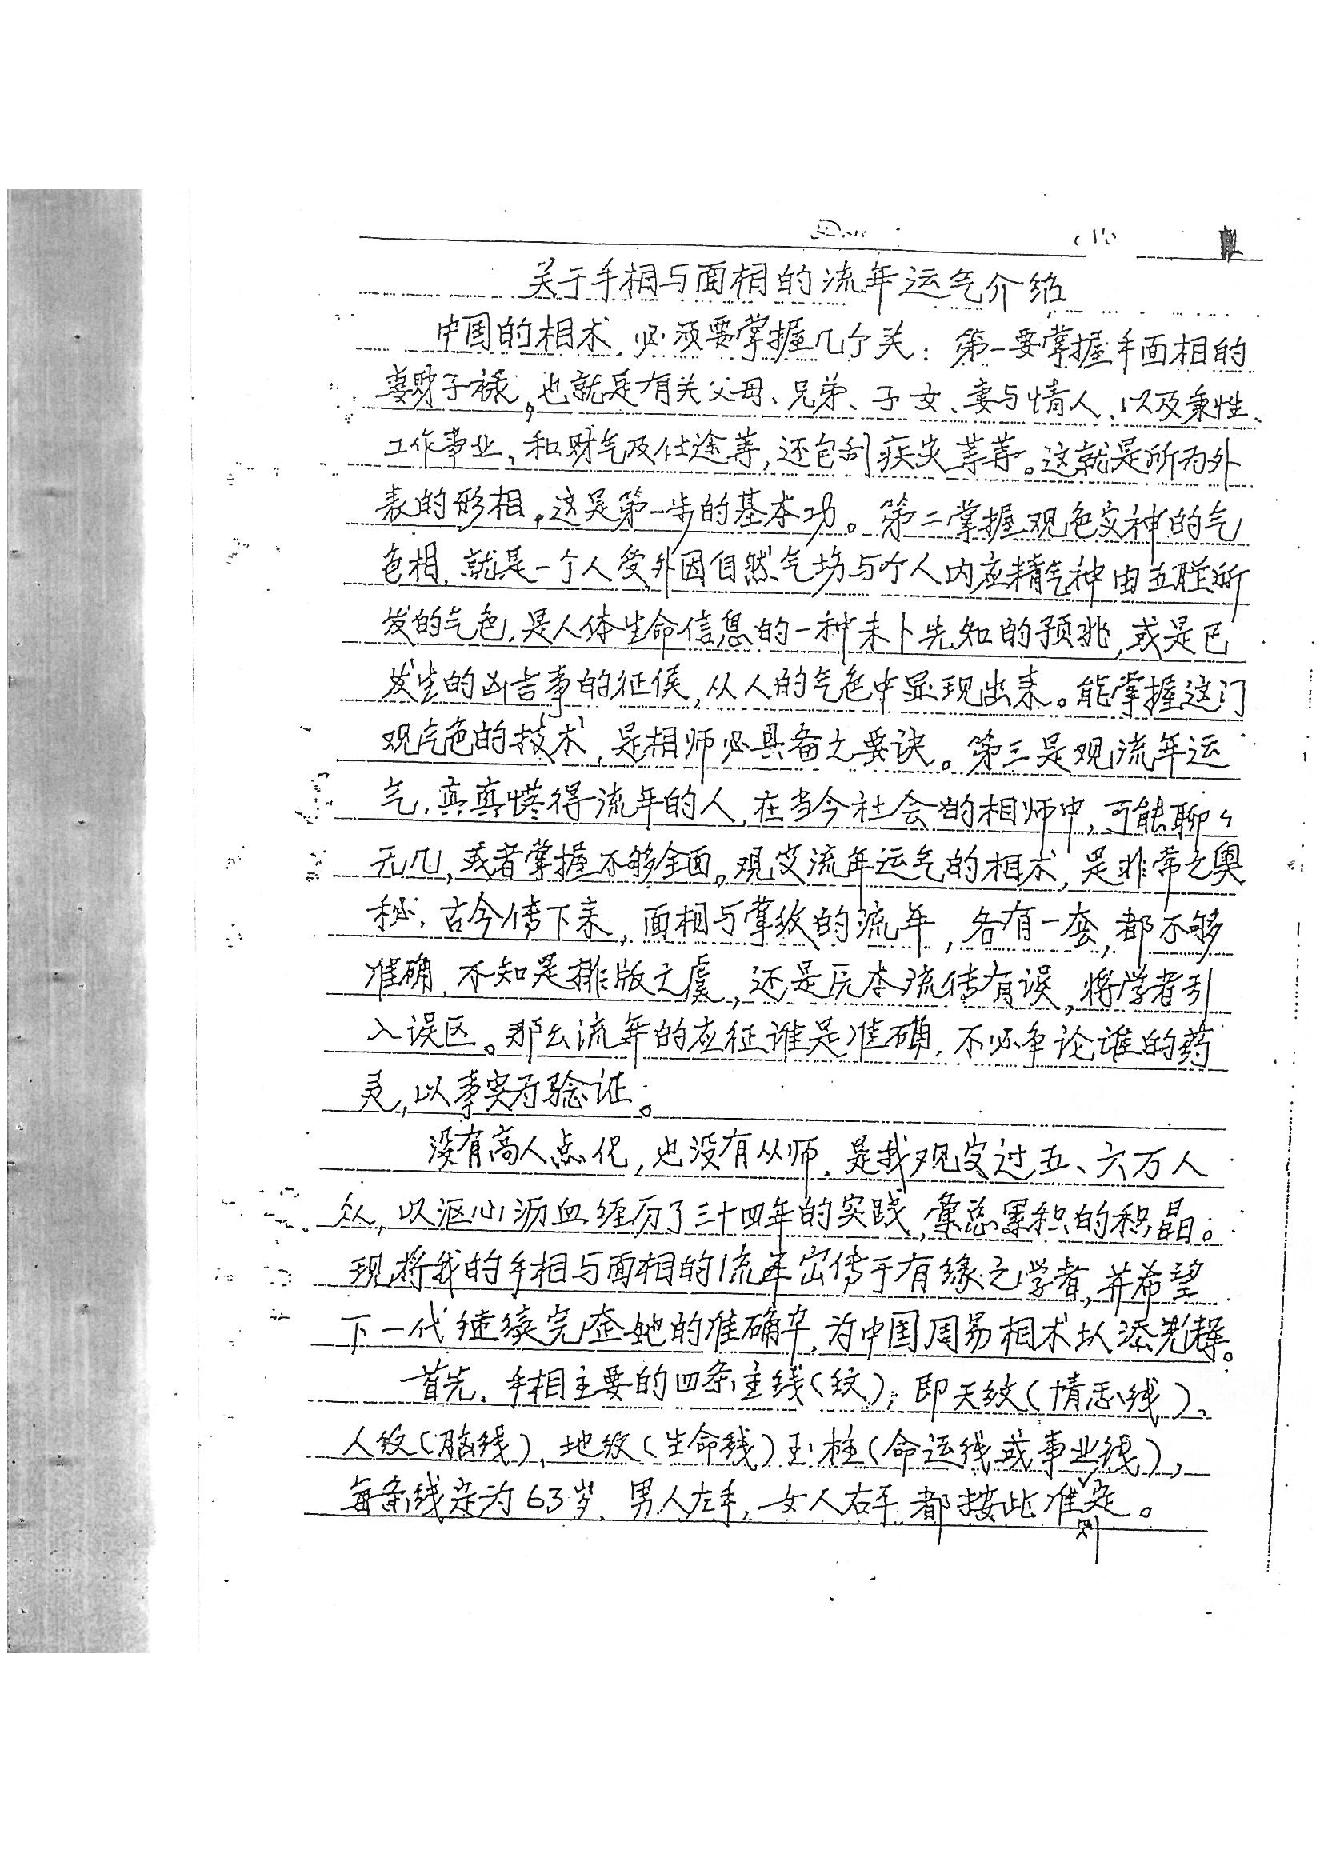 关于手相与面相的流年运气介绍
中国的相术,必须要掌握几个关:第一要掌握手面相的
妻财子禄,也就是有关父母、兄弟、子女、妻与情人,以及秉性、
工作事业,和财气及仕途等,还包刮疾灾等等。这就是所为外
表的形相,这是第一步的基本功。第二掌握观色察神的气
色相,就是一个人受外因自然气场与个人内应精气神由五脏所
发的气色,是人体生命信息的一种未卜先知的预兆,或是已
发生的凶吉事的征侯,从人的气色中显现出来。能掌握这门
观气色的技术,是相师必具备之要诀。第三是观流年运
气,真真懂得流年的人,在当今社会的相师中,可能聊々
无几,或者掌握不够全面。观察流年运气的相术,是非常之奥
秘,古今传下来,面相与掌纹的流年,各有一套,都不够
准确,不知是排版之虞,还是原本流传有误,将学者引
入误区。那么流年的应征谁是准确,不必争论谁的药
灵,以事实为验证。
没有高人点化,也没有从师,是我观察过五、六万人
众,以沤心沥血经历了三十四年的实践,汇总累积的积晶。
现将我的手相与面相的流年密传于有缘之学者,并希望
下一代继续完整她的准确率,为中国周易相术以添光辉。
首先,手相主要的四条主线(纹);即天纹(情志线)、
人纹(脑线),地纹(生命线)玉柱(命运线或事业线),
每条线定为63岁,男人左手,女人右手,都按此准则定。